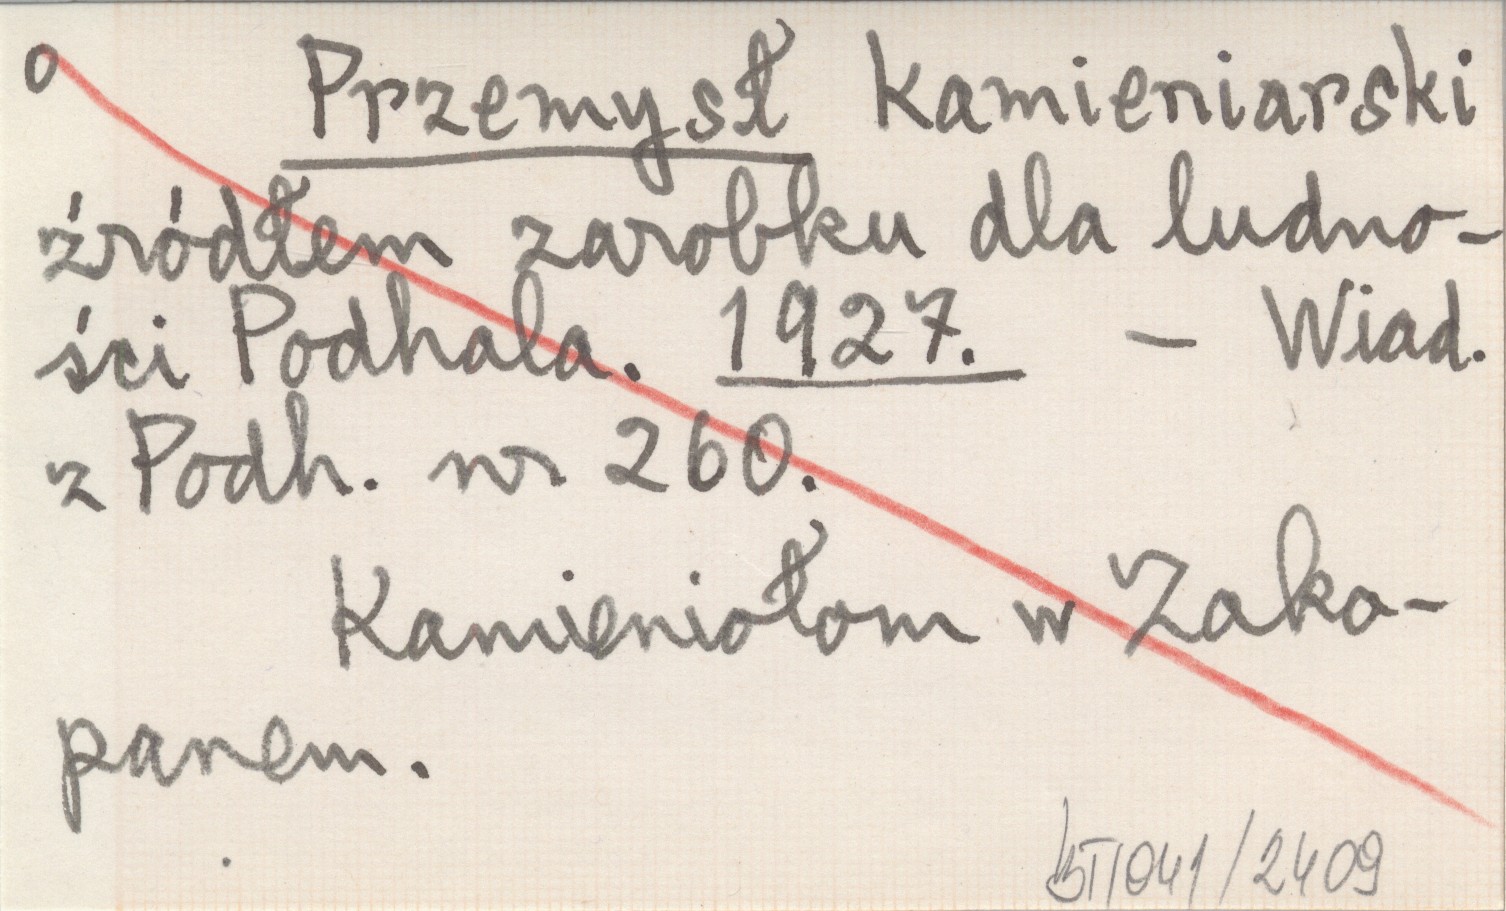 o Przemysł kamieniarski
źródłem zarobku dla ludno-
ści Podhala. 1927. – Wiad.
z Podh. nr 260.
Kamieniołom w Zako-
panem.
/2409